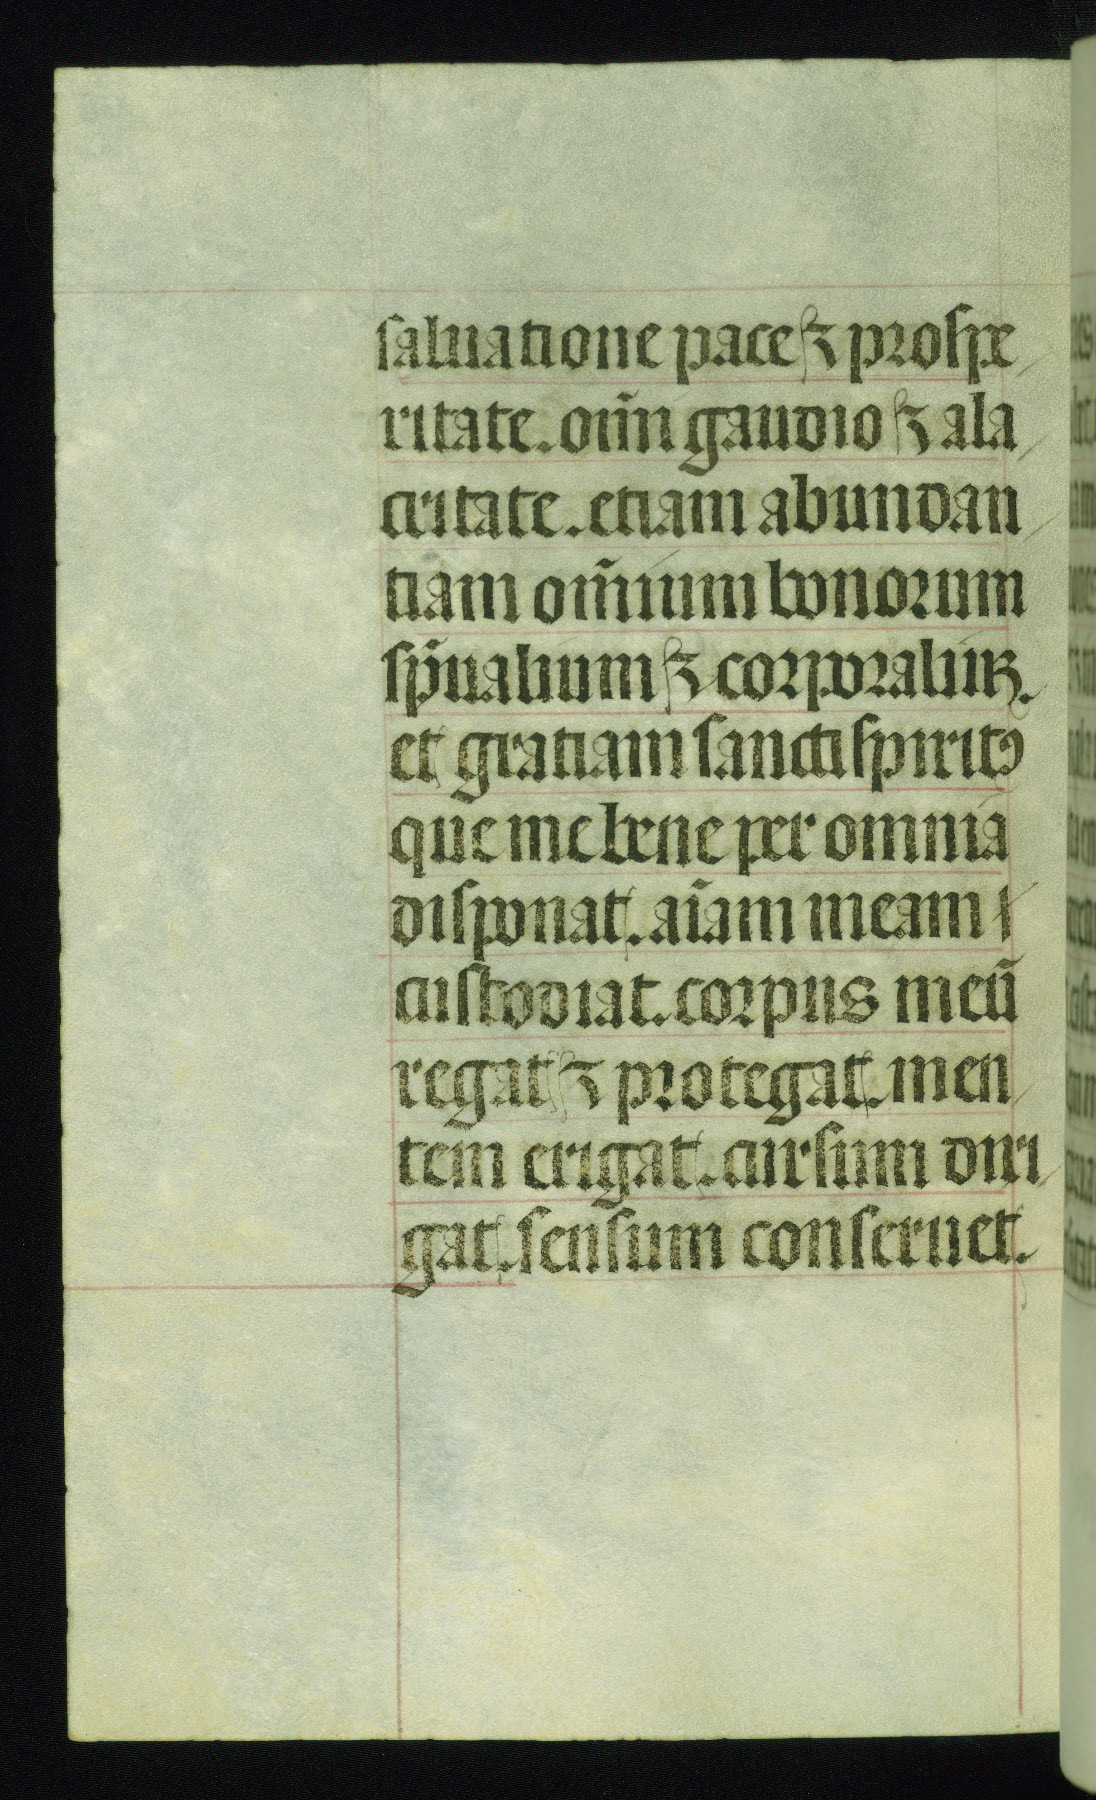 saluatione pace ⁊ prospe
ritate. om̄i gaudio ⁊ ala
critate. etiam abundan
tiam om̄ium bonorum
sp̄ualium ⁊ corporaliuꝫ.
et gratiam sancti spiritꝰ
que me bene per omnia
disponat. aīam meam
custodiat. corpus meū
regat ⁊ protegat. men
tem erigat. cursum diri
gat. sensum conseruet.